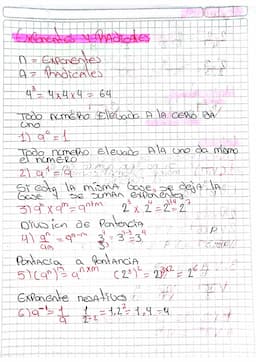 Exponentes y Radicales
n = Exponentes
a = Radicales
4³ = 4x4x4 = 64
Todo número Elevado A la cero Da
uno
1) a⁰ = 1
Todo número elevado A la uno da mismo
el número
2) a¹ = a
Si está la misma base, se deja la
base y se suman exponentes
3) aⁿ x aᵐ = aⁿ⁺ᵐ
División de Pontencia
4) aⁿ/aᵐ = aⁿ⁻ᵐ
Pontencia a Pontancia
5) (aⁿ)ᵐ = aⁿˣᵐ (2³)² = 2³ˣ² = 2⁶
Exponente negativos
6) a⁻¹ = 1/a